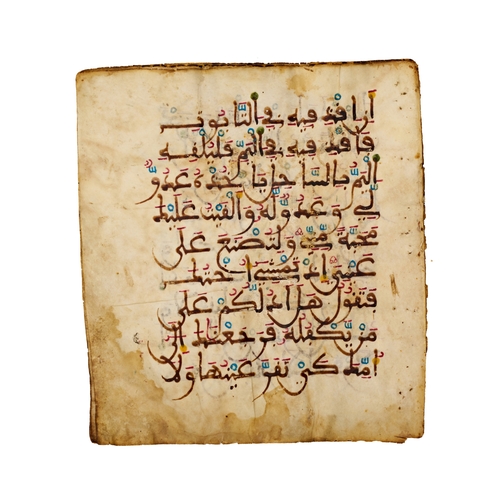 أن اقذفيه في التابوت
فاقذفيه في اليم فليلقه
اليم بالساحل ياخذه عدو
لي وعدو له وألقيت عليك
محبة مني ولتصنع على
عيني إذ تمشي أختك
فتقول هل أدلكم على
من يكفله فرجعناك إلى
أمك كي تقر عينها ولا